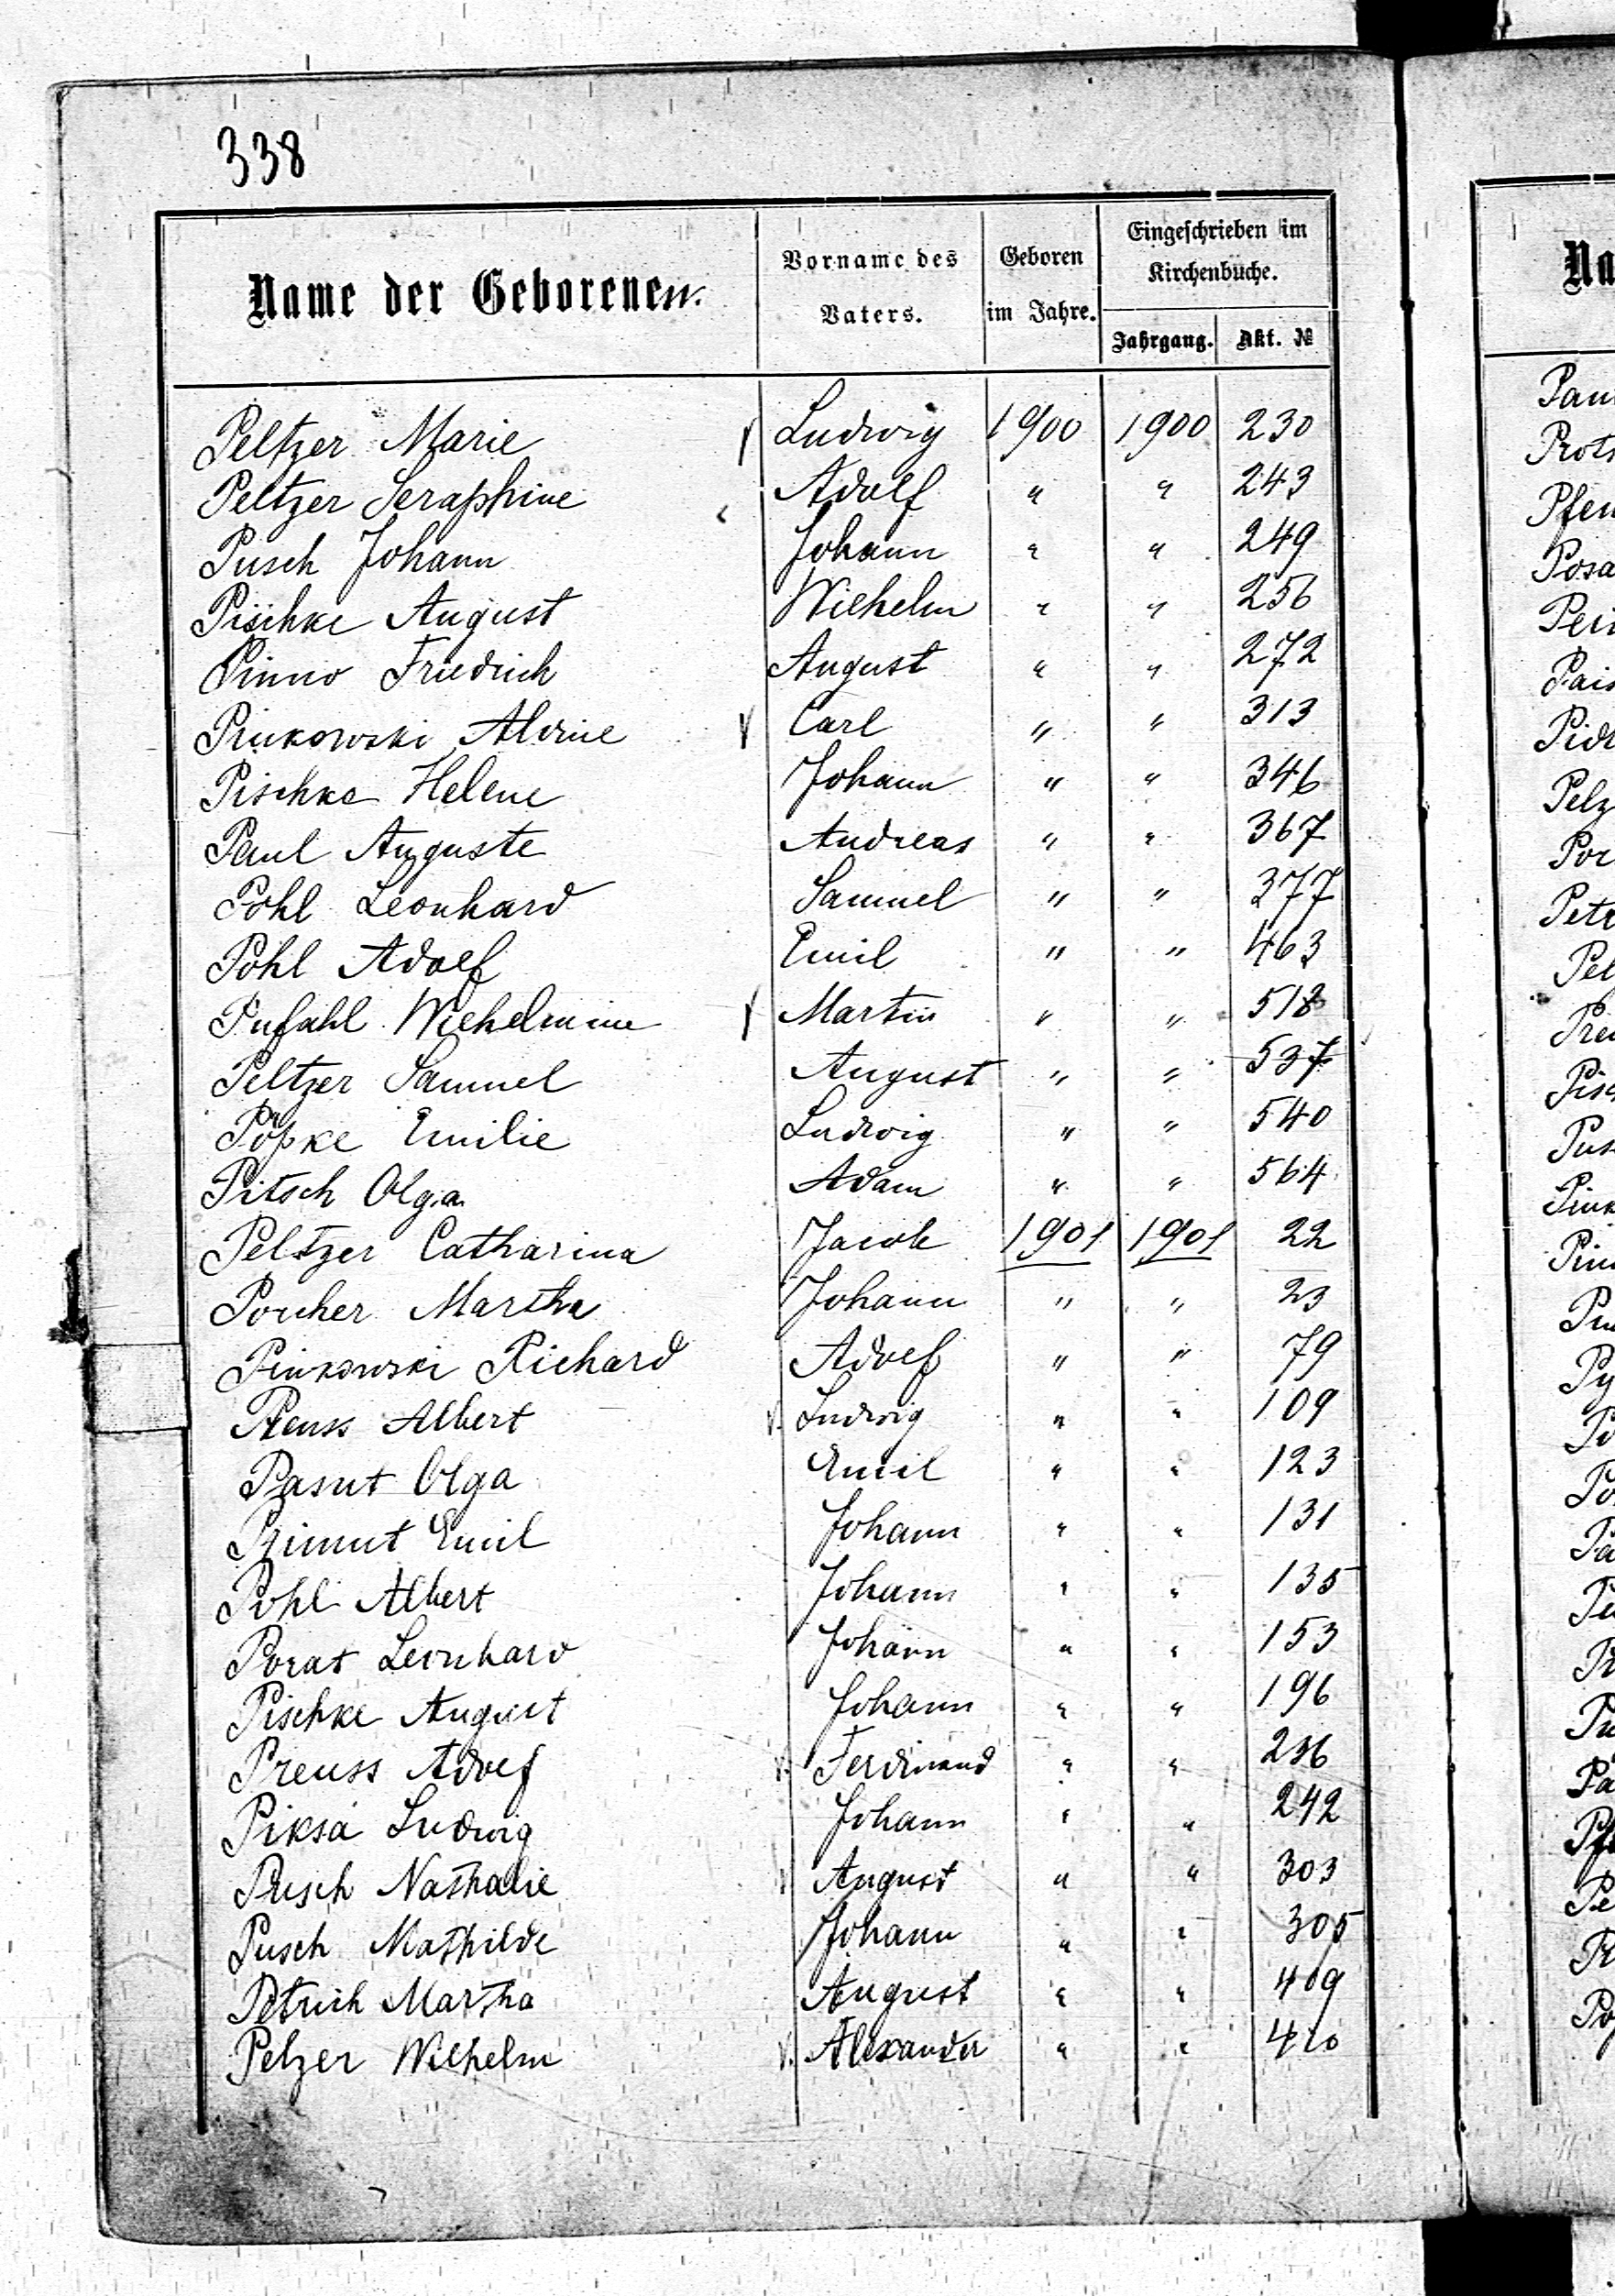 338
Name der Geborenen. Vorname des Vaters. Geboren im Jahre. Eingeschrieben im Kirchenbuche. Jahrgang. Akt. №
Peltzer Marie Ludwig 1900 1900 230
Peltzer Seraphine Adolf " " 243
Pusch Johann Johann " " 249
Pischke August Wilhelm " " 256
Pinno Friedrich August " " 272
Pinkowski Alvine Carl " " 313
Pischke Helene Johann " " 346
Paul Auguste Andreas " " 367
Pohl Leonhard Samuel " " 377
Pohl Adolf Emil " " 463
Pufahl Wilhelmine Martin " "
Peltzer Samuel August " " 537
Pöpke Emilie Ludwig " " 540
Pitsch Olga Adam " " 564
Peltzer Catharina Jacob 1901 1901 22
Porcher Martha Johann " " 23
Pinkowski Richard Adolf " " 79
Preuss Albert Ludwig " " 109
Pasut Olga Emil " " 123
Emil Johann " " 131
Pohl Albert Johann " " 135
Porat Leonhard Johann " " 153
Pischke August Johann " " 196
Preuss Adolf Ferdinand " " 236
Piksa Ludwig Johann " " 242
Pusch Nathalie August " " 303
Pusch Mathilde Johann " " 305
Petrich Martha August " " 409
Pelzer Wilhelm Alexander " " 410
Na
Pau
Prots
Pfen
Posa
Pais
Pelz
Por
Petr
Pel
Pisc
Pus
Pink